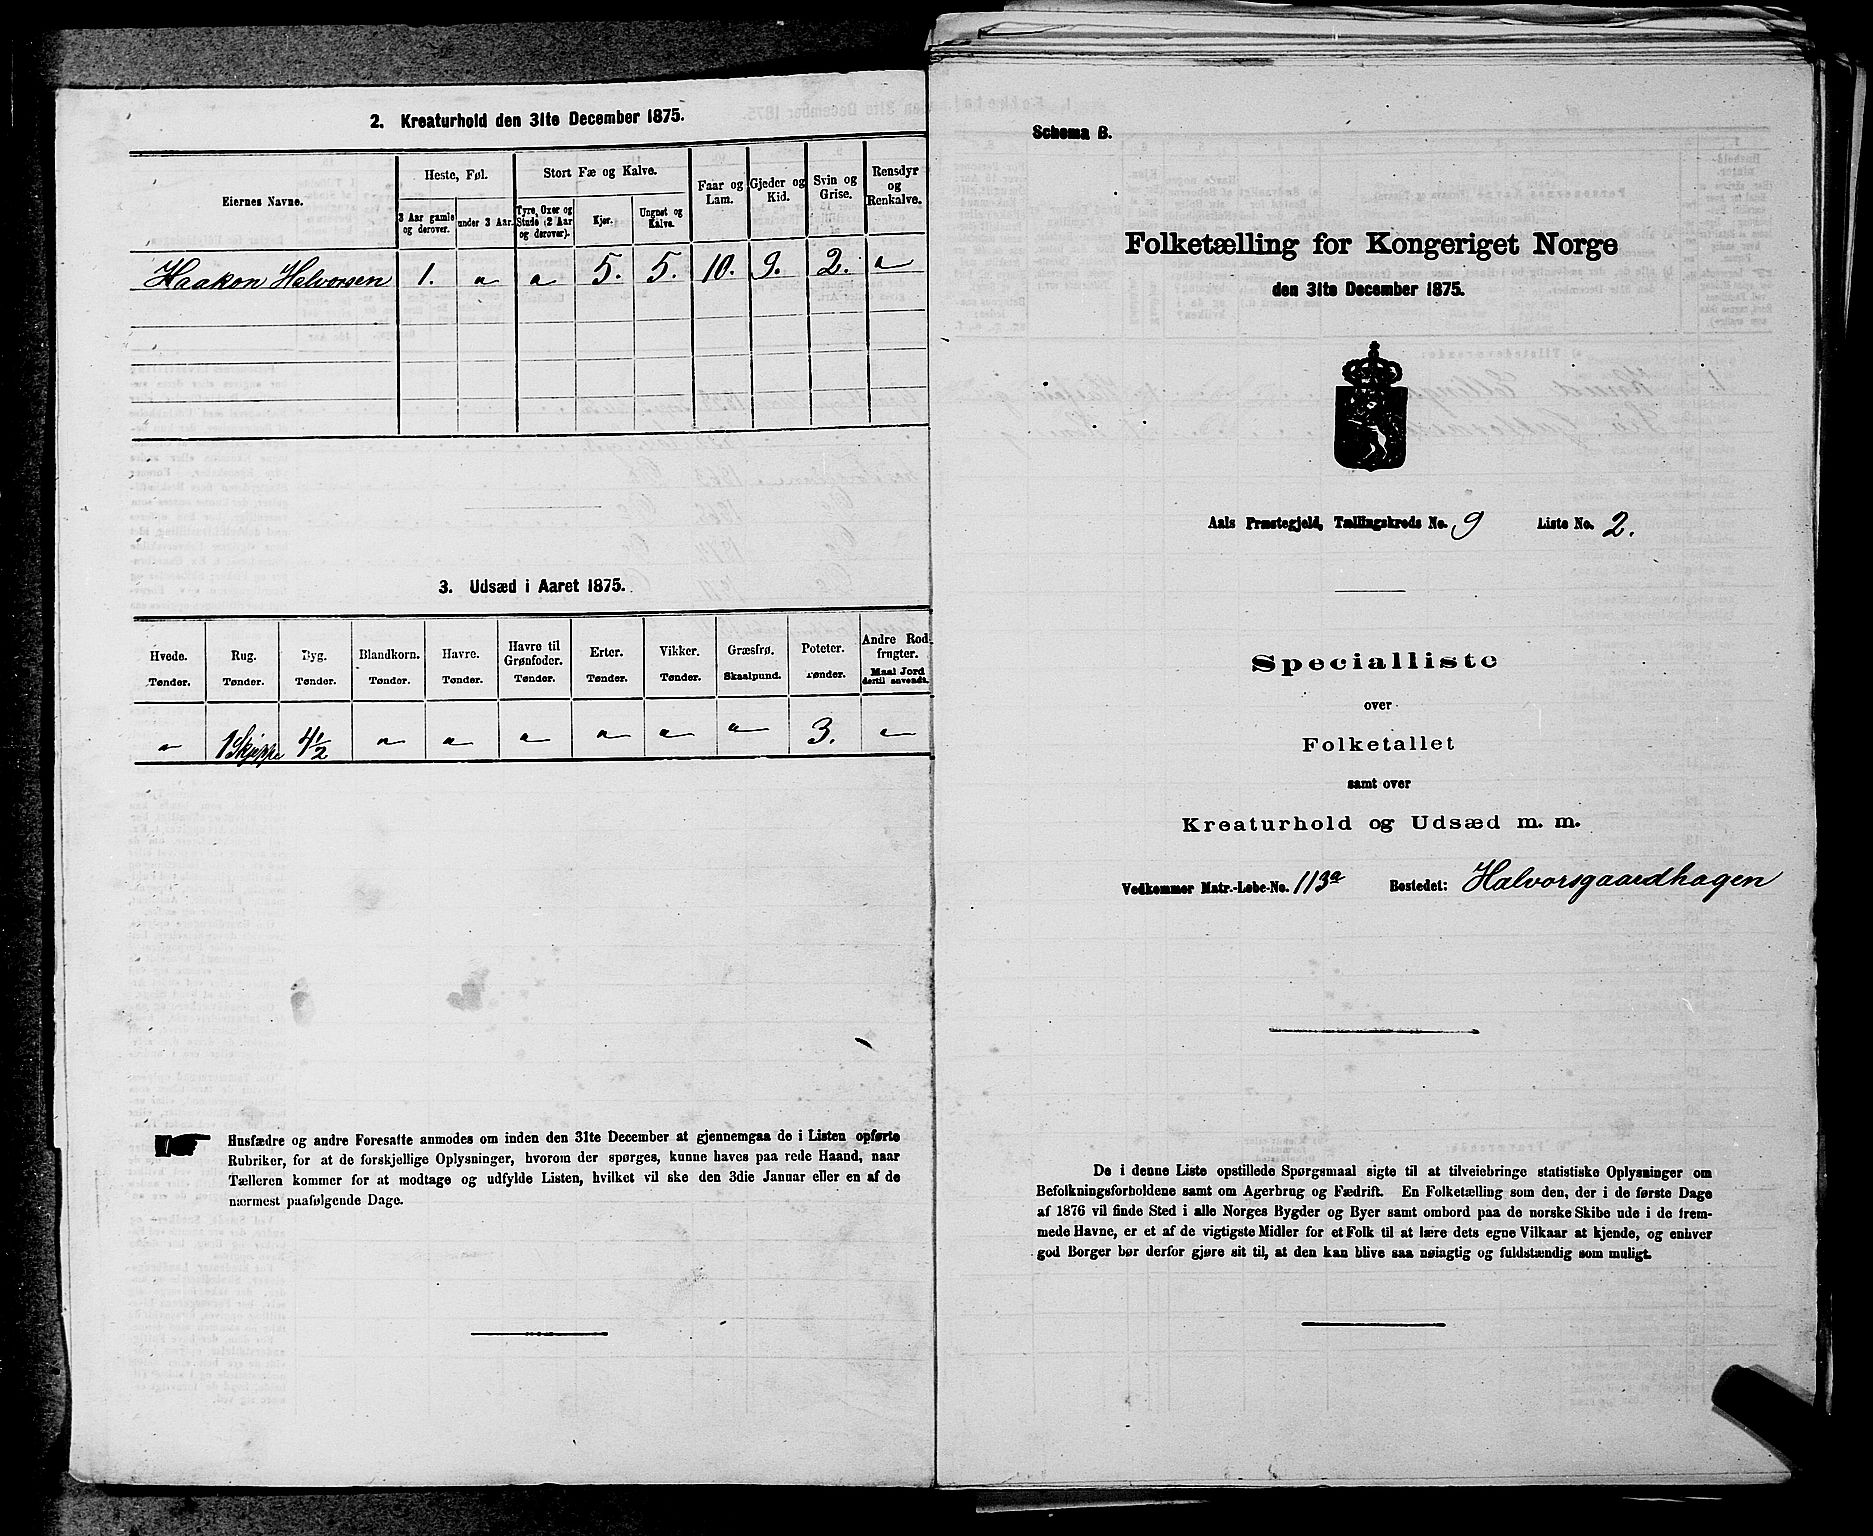 2. Kreaturhold den 31te December 1875.
Eiernes Navne.
Heste, Føl.
Stort Fæ og Kalve.
Faar og Lam.
Gjeder og Kid.
Svin og Grise.
Rensdyr og Renkalve.
3 Aar gamle og derover.
under 3 Aar.
Tyre, Oxer og Stude (2 Aar og derover).
Kjør.
Ungnøt og Kalve.
Haakon Halvorsen 1. " " 5. 5. 10. 9. 2. "
3. Udsæd i Aaret 1875.
Hvede. Rug. Byg. Blandkorn. Havre. Havre til Grønfoder. Erter. Vikker. Græsfrø. Poteter. Andre Rodfrugter.
Tønder. Tønder. Tønder. Tønder. Tønder. Tønder. Tønder. Tønder. Skaalpund. Tønder. Maal Jord dertil anvendt.
" 1 Skjeppe 4 1/2 " " " " " " 3. "
Husfædre og andre Foresatte anmodes om inden den 31te December at gjennemgaa de i Listen opførte
Rubriker, for at de forskjellige Oplysninger, hvorom der spørges, kunne haves paa rede Haand, naar
Tælleren kommer for at modtage og udfylde Listen, hvilket vil ske den 3die Januar eller en af de
nærmest paafølgende Dage.
Schema B.
Folketælling for Kongeriget Norge
den 31te December 1875.
Aals Præstegjeld, Tællingskreds No. 9 Liste No. 2.
Specialliste
over
Folketallet
samt over
Kreaturhold og Udsæd m. m.
Vedkommer Matr.-Løbe-No. 113a Bostedet: Halvorsgaardhagen
De i denne Liste opstillede Spørgsmaal sigte til at tilveiebringe statistiske Oplysninger om
Befolkningsforholdene samt om Agerbrug og Fædrift. En Folketælling som den, der i de første Dage
af 1876 vil finde Sted i alle Norges Bygder og Byer samt ombord paa de norske Skibe ude i de frem-
mede Havne, er et af de vigtigste Midler for et Folk til at lære dets egne Vilkaar at kjende, og enhver
god Borger bør derfor gjøre sit til, at den kan blive saa nøiagtig og fuldstændig som muligt.